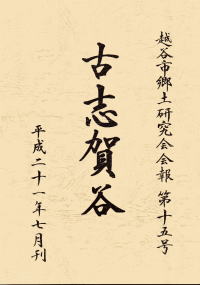 越谷市郷土研究会会報 第十五号
古志賀谷
平成二十一年七月刊